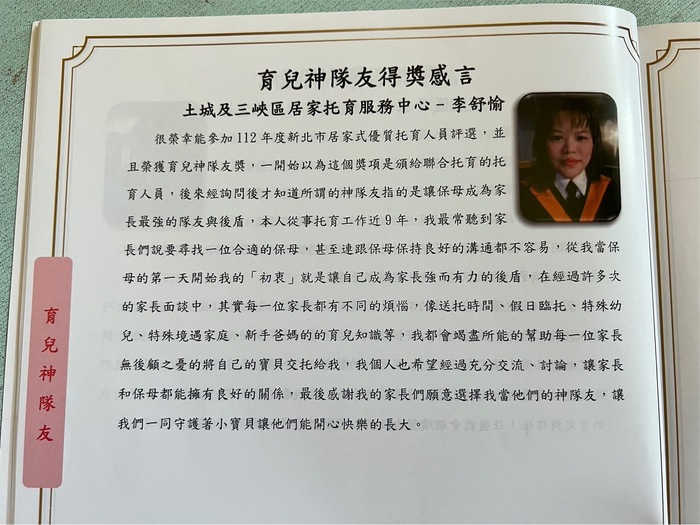 育兒神隊友得獎感言
土城及三峽區居家托育服務中心－李舒愉
很榮幸能參加112年度新北市居家式優質托育人員評選，並
且榮獲育兒神隊友獎，一開始以為這個獎項是頒給聯合托育的托
育人員，後來經詢問後才知道所謂的神隊友指的是讓保母成為家
長最強的隊友與後盾，本人從事托育工作近9年，我最常聽到家
長們說要尋找一位合適的保母，甚至連跟保母保持良好的溝通都不容易，從我當保
母的第一天開始我的「初衷」就是讓自己成為家長強而有力的後盾。在經過許多次
的家長面談中，其實每一位家長都有不同的煩惱，像送托時間、假日臨托、特殊幼
兒、特殊境遇家庭、新手爸媽的的育兒知識等，我都會竭盡所能的幫助每一位家長
無後顧之憂的將自己的寶貝交托給我，我個人也希望經過充分交流、討論，讓家長
和保母都能擁有良好的關係，最後感謝我的家長們願意選擇我當他們的神隊友，讓
我們一同守護著小寶貝讓他們能開心快樂的長大。
育兒神隊友